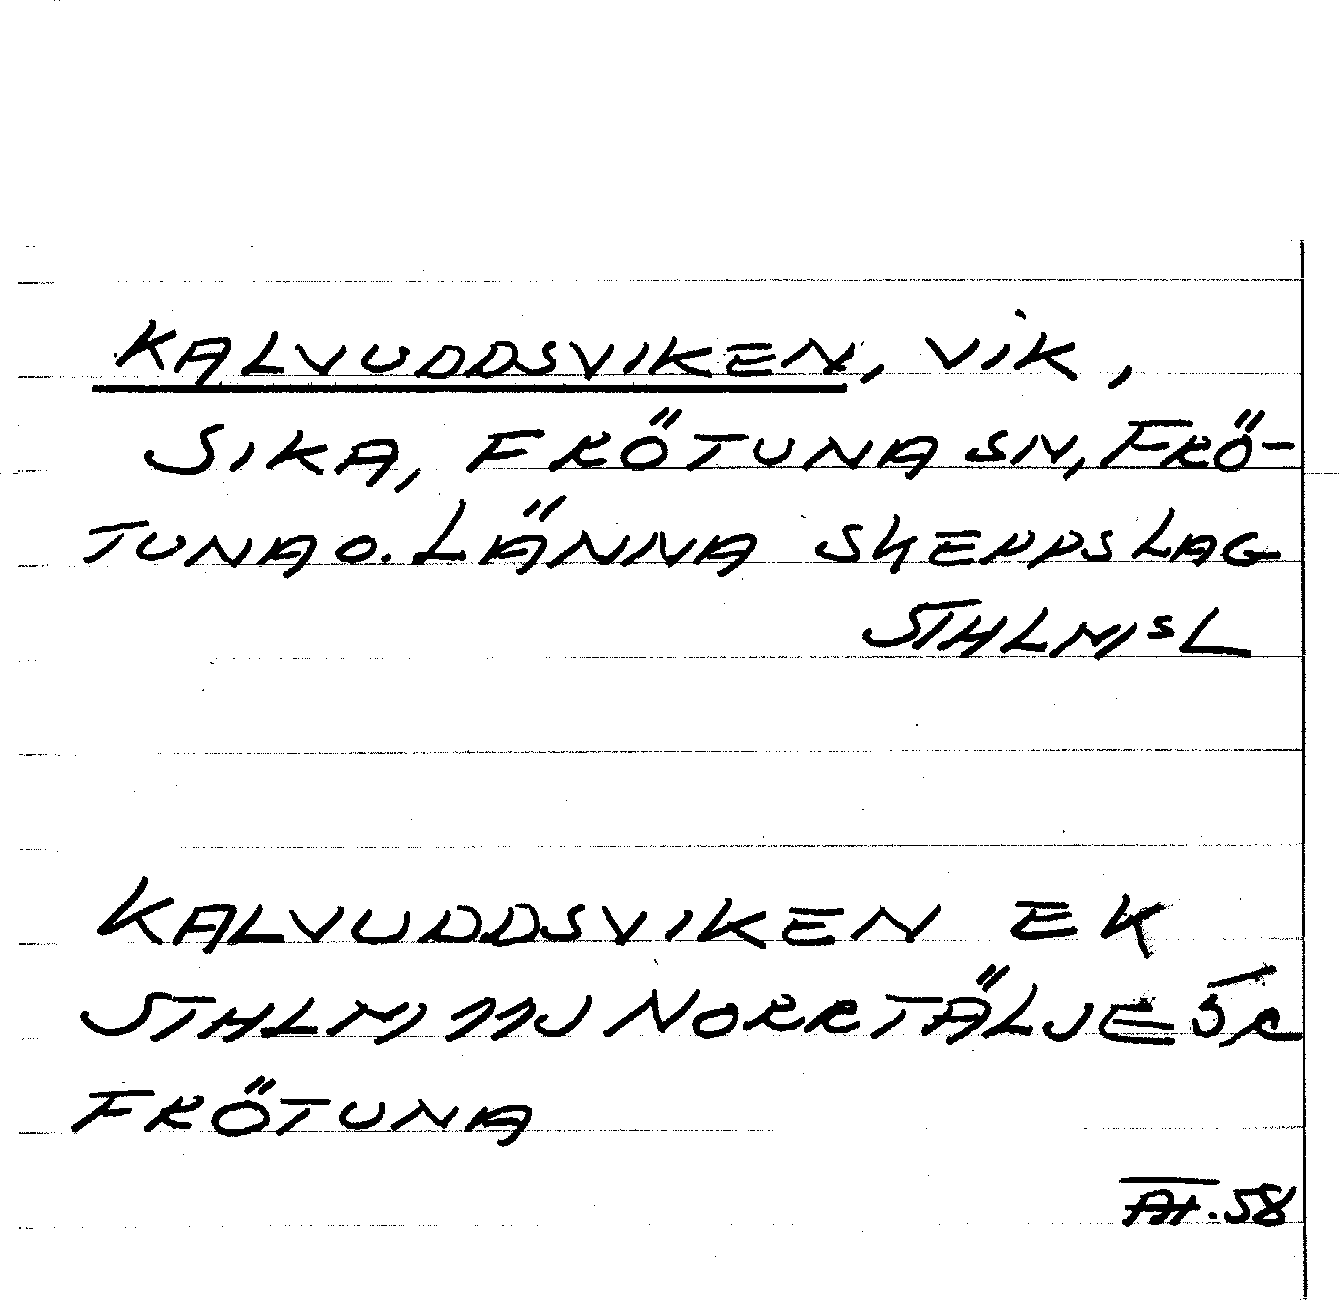 KALVUDDSVIKEN, VIK,
SIKA, FRÖTUNA SN, FRÖ-
TUNA O. LÄNNA SKEPPSLAG
STHLMS L
KALVUDDSVIKEN EK
STHLM 11J NORRTÄLJE
FRÖTUNA
58